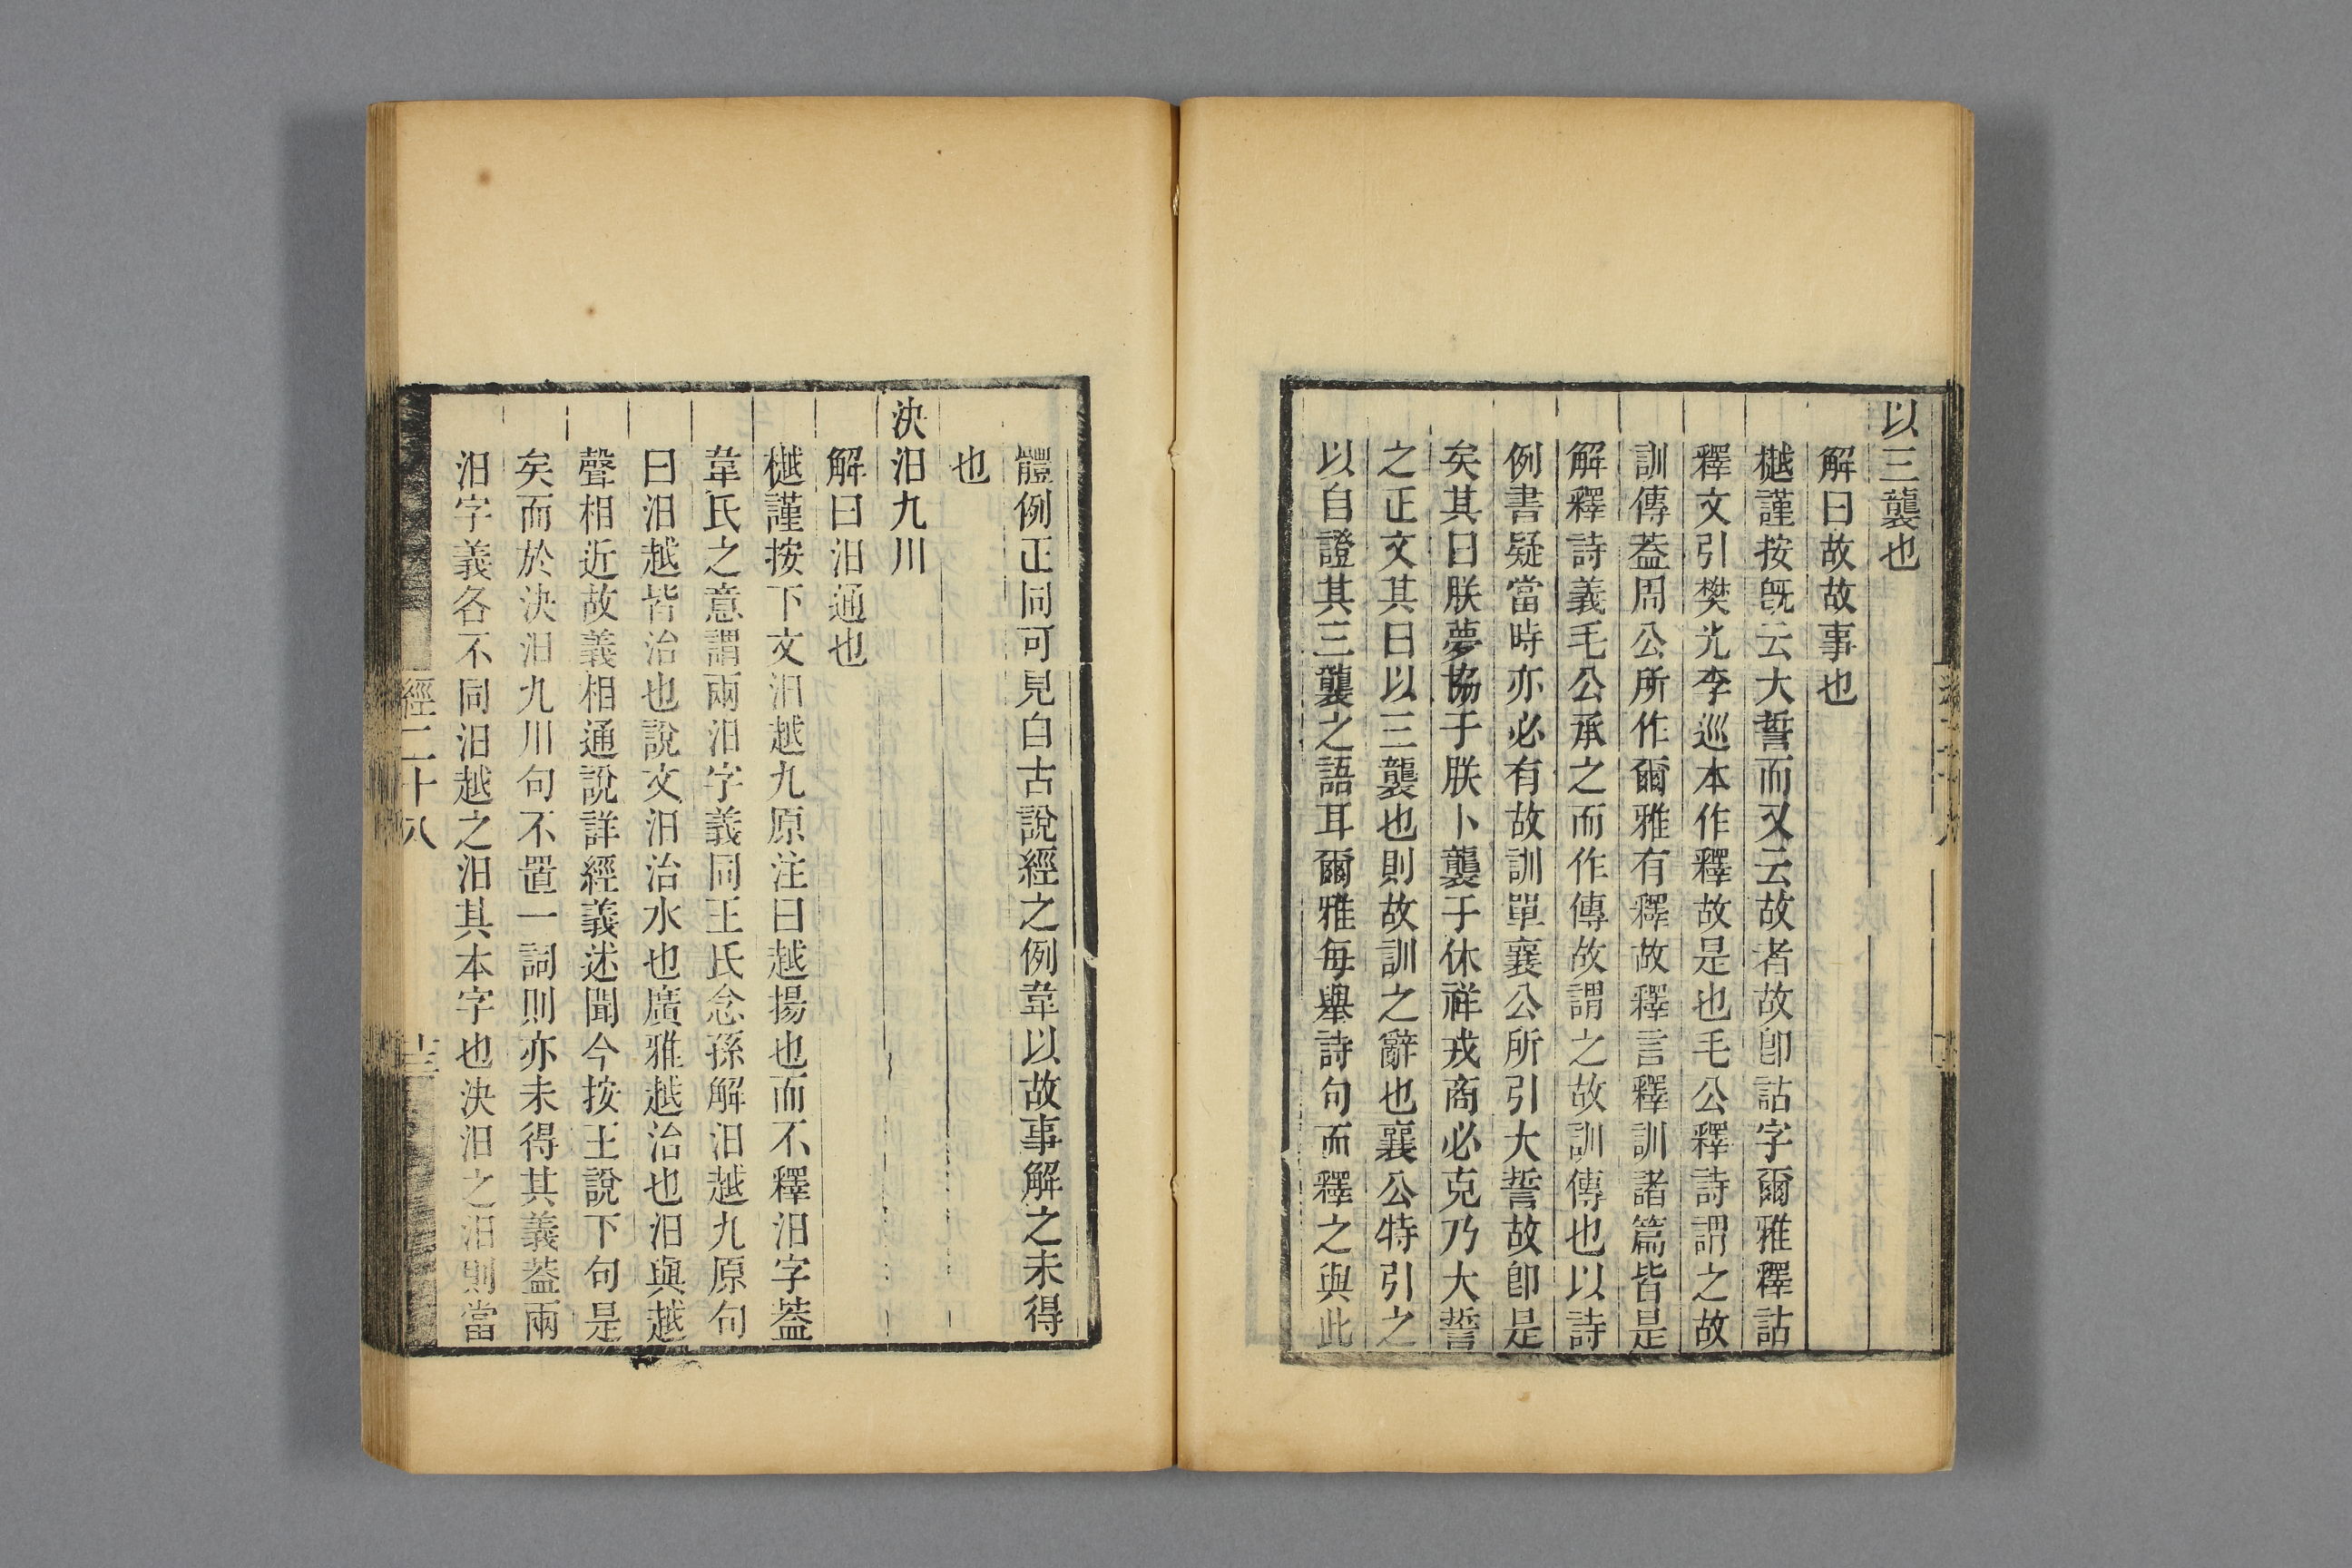 以三襲也
解曰故故事也
樾謹按旣云大誓而又云故者故卽詁字爾雅釋詁
釋文引樊光李巡本作釋故是也毛公釋詩謂之故
訓傳葢周公所作爾雅有釋故釋言釋訓諸篇皆是
解釋詩義毛公承之而作傳故謂之故訓傳也以詩
例書疑當時亦必有故訓單襄公所引大誓故卽是
矣其曰朕夢協于朕卜襲于休祥戎商必克乃大誓
之正文其曰以三襲也則故訓之辭也襄公特引之
以自證其三襲之語耳爾雅每舉詩句而釋之與此
體例正同可見自古說經之例韋以故事解之未得
也
決汨九川
解曰汨通也
樾謹按下文汨越九原注曰越揚也而不釋汨字葢
韋氏之意謂兩汨字義同王氏念孫解汨越九原句
曰汨越皆治也說文汨治水也廣雅越治也汨與越
聲相近故義相通說詳經義述聞今按王說下句是
矣而於決汨九川句不置一詞則亦未得其義葢兩
汨字義各不同汨越之汨其本字也決汨之汨則當
經二十八
十三